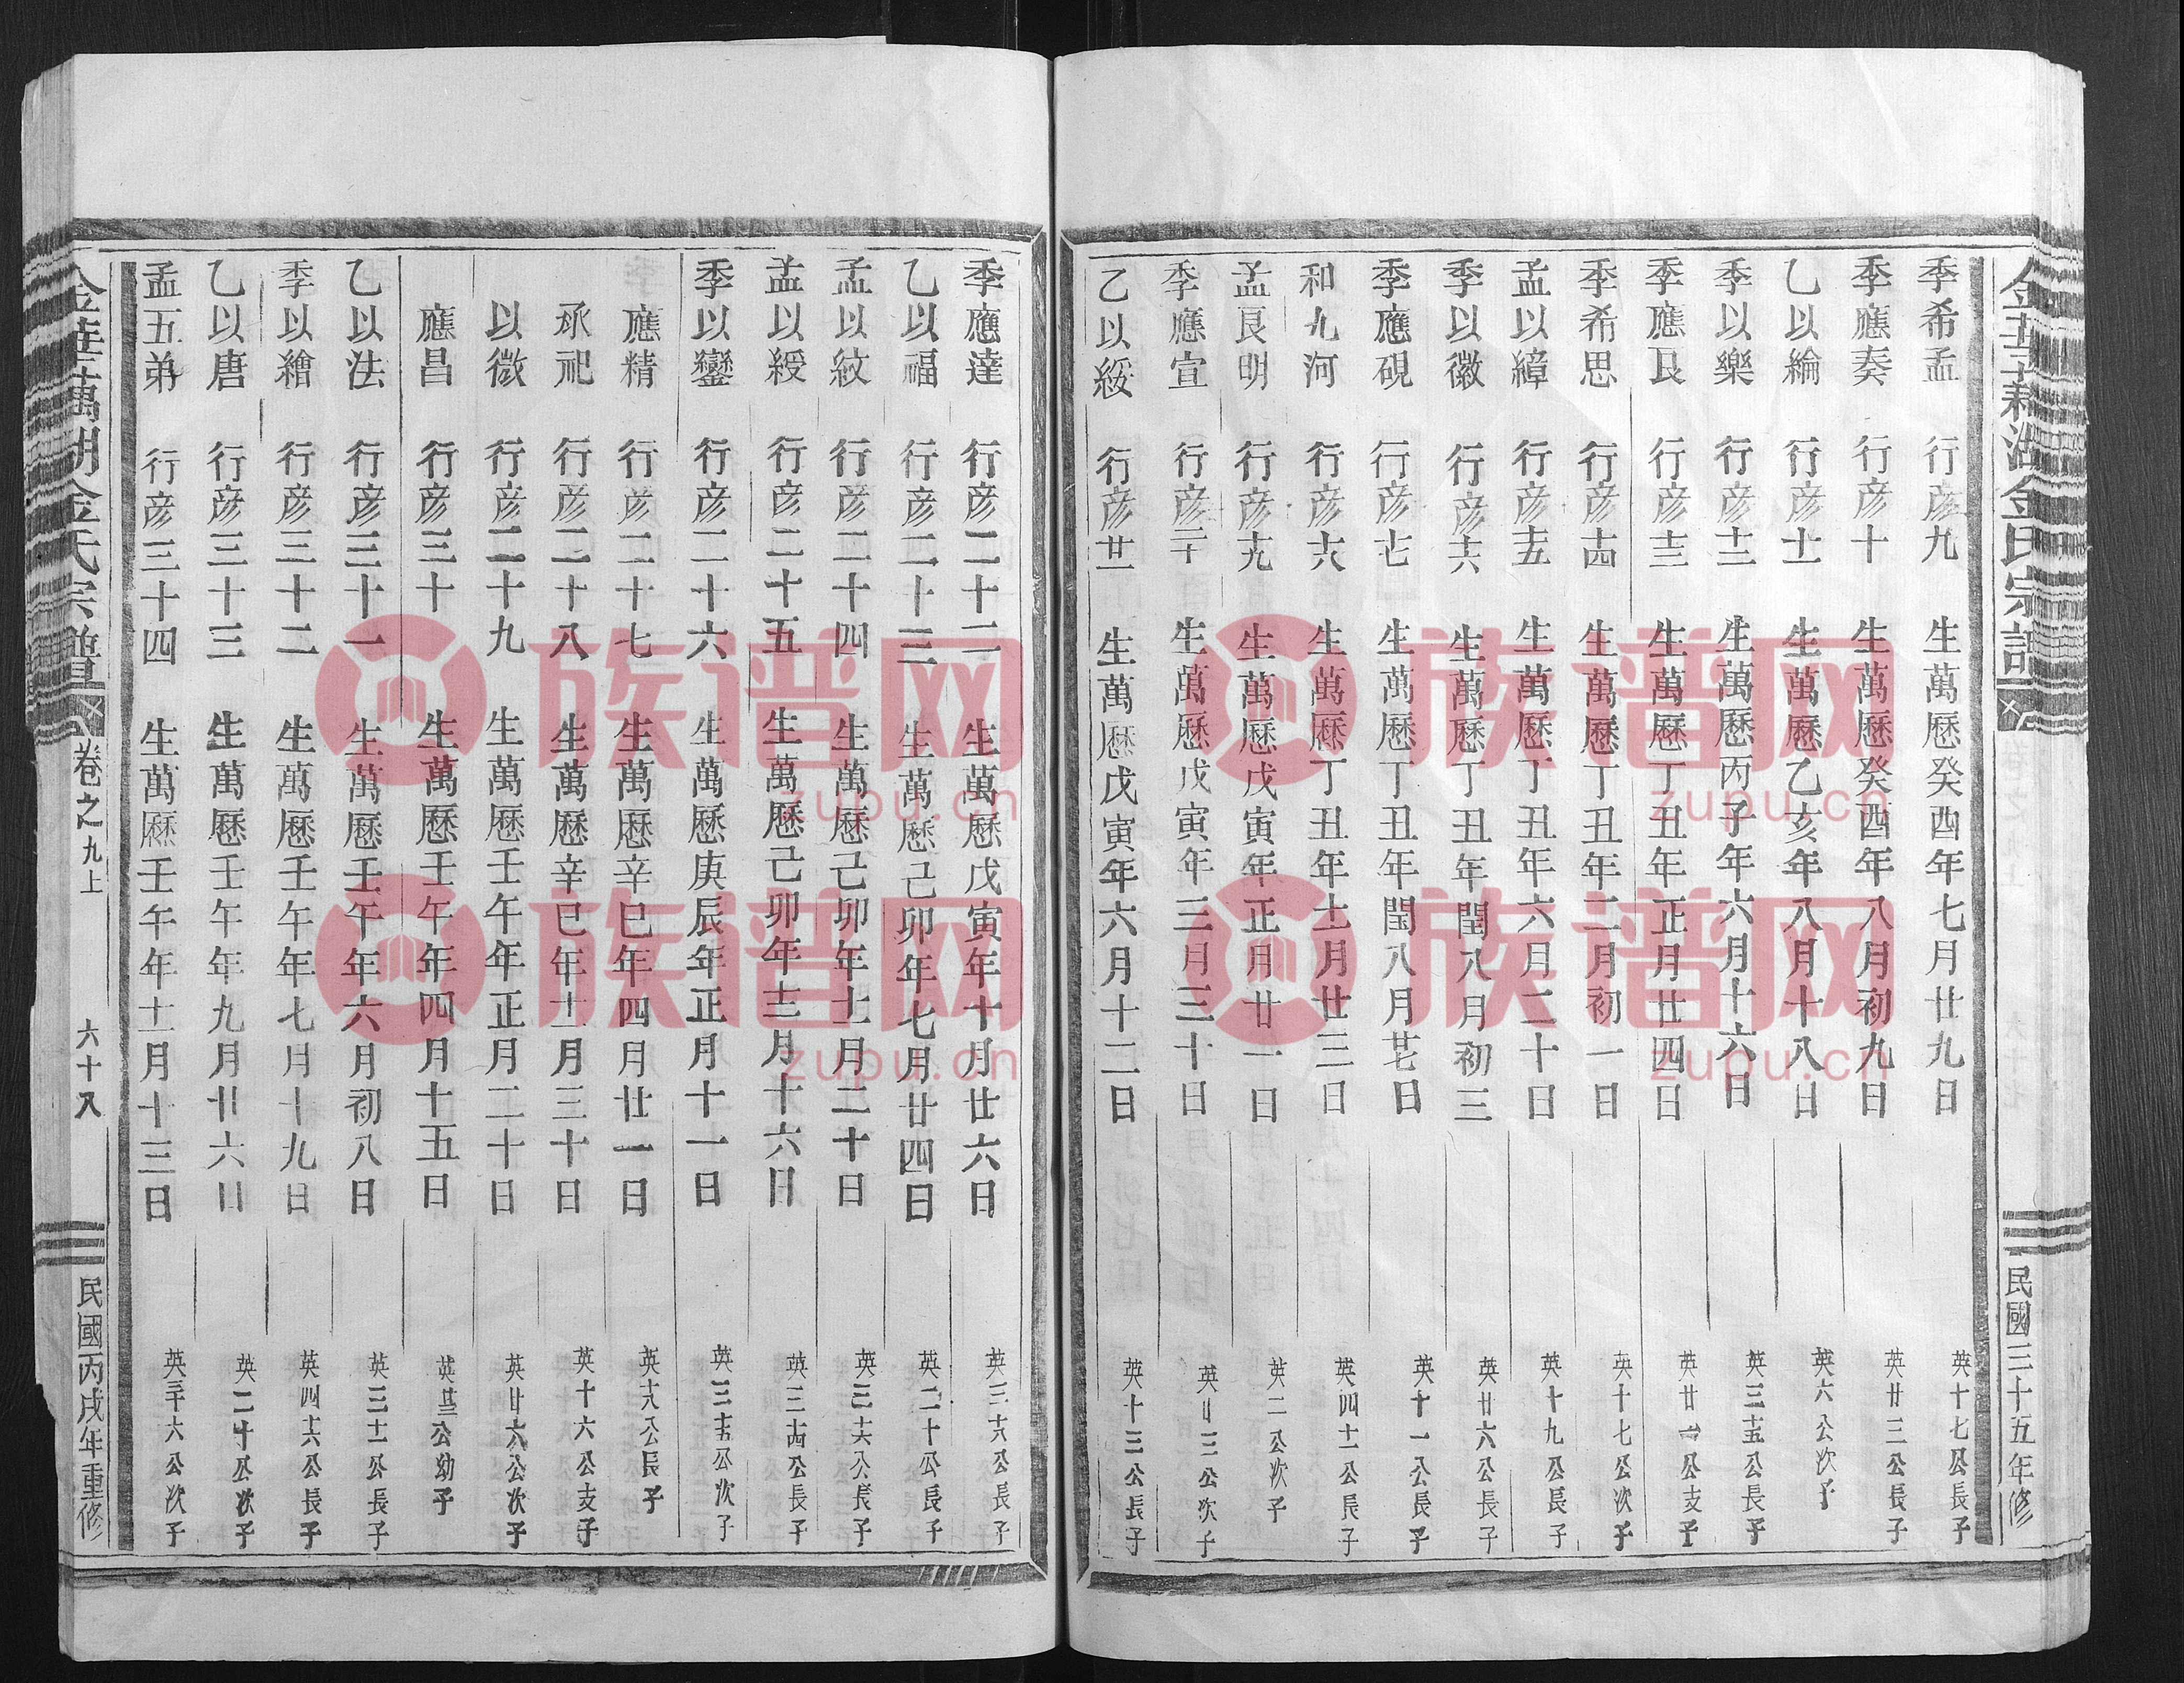 季希孟 行彦九 生萬厯癸酉年七月廿九日 英十七公長子
季應奏 行彦十 生萬厯癸酉年八月初九日 英廿三公長子
乙以綸 行彦十一 生萬厯乙亥年八月十八日 英六公次子
季以樂 行彦十二 生萬厯丙子年六月十六日 英三十五公長子
季應艮 行彦十三 生萬厯丁丑年正月廿四日 英廿一公支子
季希思 行彦十四 生萬厯丁丑年二月初一日 英十七公次子
孟以綽 行彦十五 生萬厯丁丑年六月二十日 英十九公長子
季以徽 行彦十六 生萬厯丁丑年閏八月初三 英廿六公長子
季應硯 行彦十七 生萬厯丁丑年閏八月廿七日 英十一公長子
和九河 行彦十八 生萬厯丁丑年十一月廿三日 英四十一公長子
孟艮明 行彦十九 生萬厯戊寅年正月廿一日 英二公次子
季應宣 行彦二十 生萬厯戊寅年三月三十日 英廿三公次子
乙以綏 行彦廿一 生萬厯戊寅年六月十二日 英十三公長子
民國三十五年修
季應達 行彦二十二 生萬厯戊寅年十月廿六日 英三十八公長子
乙以福 行彦二十三 生萬厯己卯年七月廿四日 英二十公長子
孟以紋 行彦二十四 生萬厯己卯年十一月二十日 英三十六公長子
孟以綬 行彦二十五 生萬厯己卯年十二月十六日 英三十四公長子
季以鑾 行彦二十六 生萬厯庚辰年正月十一日 英三十五公次子
應精 行彦二十七 生萬厯辛巳年四月廿一日 英十八公長子
承祀 行彦二十八 生萬厯辛巳年十一月三十日 英十六公支子
以微 行彦二十九 生萬厯壬午年正月二十日 英廿六公次子
應昌 行彦三十 生萬厯壬午年四月十五日 公幼子
乙以法 行彦三十一 生萬厯壬午年六月初八日 英三十一公長子
季以繪 行彦三十二 生萬厯壬午年七月十九日 英四十六公長子
乙以唐 行彦三十三 生萬厯壬午年九月廿六日 英二十公次子
孟五弟 行彦三十四 生萬厯壬午年十一月十三日 英三十六公次子
金華萬湖金氏宗譜 卷之九上 六十八 民國丙戌年重修
族谱网
zupu.cn
族谱网
zupu.cn
族谱网
zupu.cn
族谱网
zupu.cn